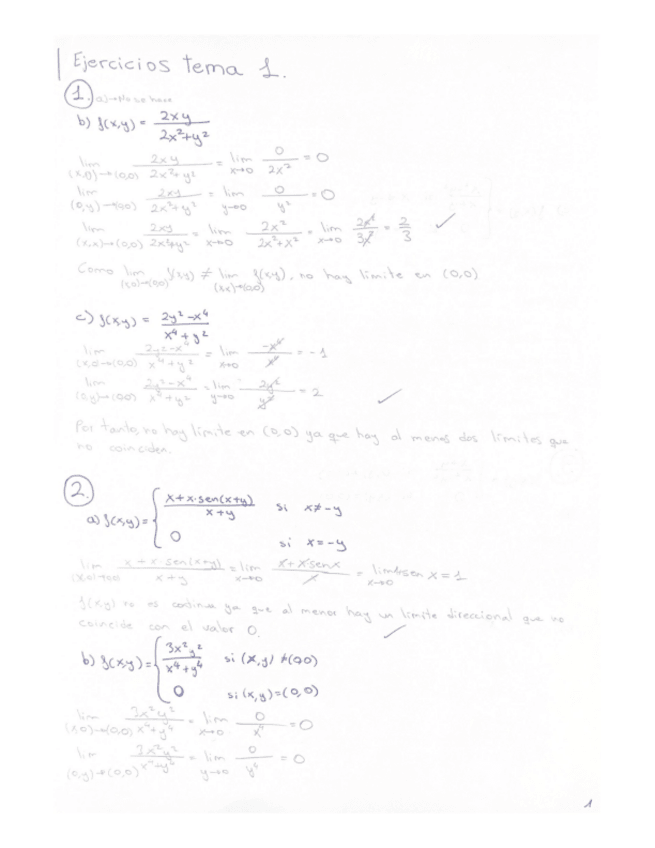 Ejercicios tema 1.
1. a) → No se hace
b) f(x,y) = 2xy / 2x²+y²
lim (x,0)→(0,0) 2xy / 2x²+y² = lim x→0 0 / 2x² = 0
lim (0,y)→(0,0) 2xy / 2x²+y² = lim y→0 0 / y² = 0
lim (x,x)→(0,0) 2xy / 2x²+y² = lim x→0 2x² / 2x²+x² = lim x→0 2x² / 3x² = 2/3 ✓
Como lim (x,0)→(0,0) f(x,y) ≠ lim (x,x)→(0,0) f(x,y), no hay límite en (0,0)
c) f(x,y) = 2y²-x⁴ / x⁴+y²
lim (x,0)→(0,0) 2y²-x⁴ / x⁴+y² = lim x→0 -x⁴ / x⁴ = -1
lim (0,y)→(0,0) 2y²-x⁴ / x⁴+y² = lim y→0 2y² / y² = 2 ✓
Por tanto, no hay límite en (0,0) ya que hay al menos dos límites que
no coinciden.
2.
a) f(x,y) = { x+x·sen(x+y) / x+y si x≠-y
0 si x=-y
lim (x,0)→(0,0) x+x·sen(x+y) / x+y = lim x→0 x+x senx / x = lim x→0 1+sen x = 1
f(x,y) no es continua ya que al menos hay un límite direccional que no
coincide con el valor 0. ✓
b) f(x,y) = { 3x²y² / x⁴+y⁴ si (x,y)≠(0,0)
0 si (x,y)=(0,0)
lim (x,0)→(0,0) 3x²y² / x⁴+y⁴ = lim x→0 0 / x⁴ = 0
lim (0,y)→(0,0) 3x²y² / x⁴+y⁴ = lim y→0 0 / y⁴ = 0
1